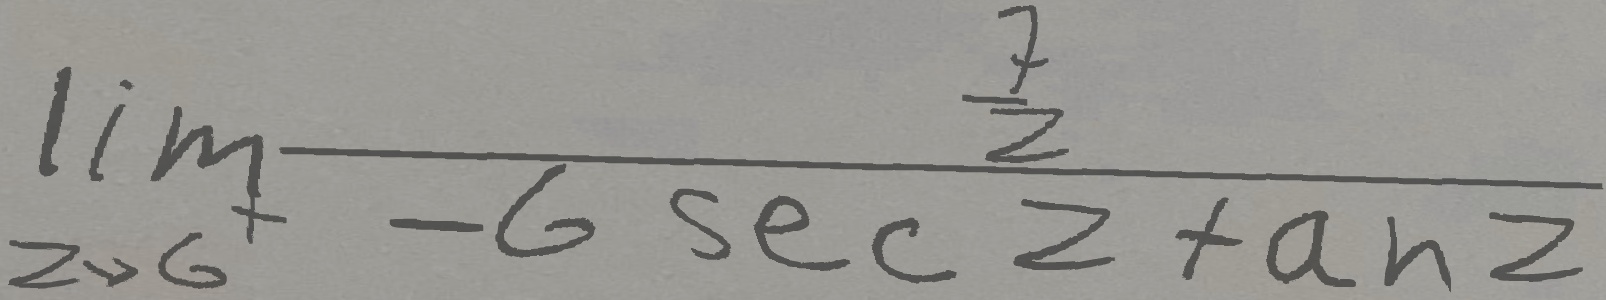 \lim_{z \to 6^+} \frac{\frac{7}{z}}{-6 \sec z \tan z}